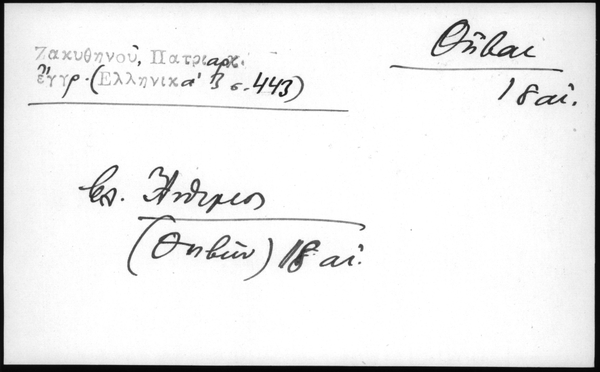 Ζακυθηνοῦ, Πατριαρχ.
ἔγγρ. (Ἑλληνικα' 3 σ. 443)
Θῆβαι
18 αἰ.
Ἄνθιμος
(Θηβῶν) 18 αἰ.